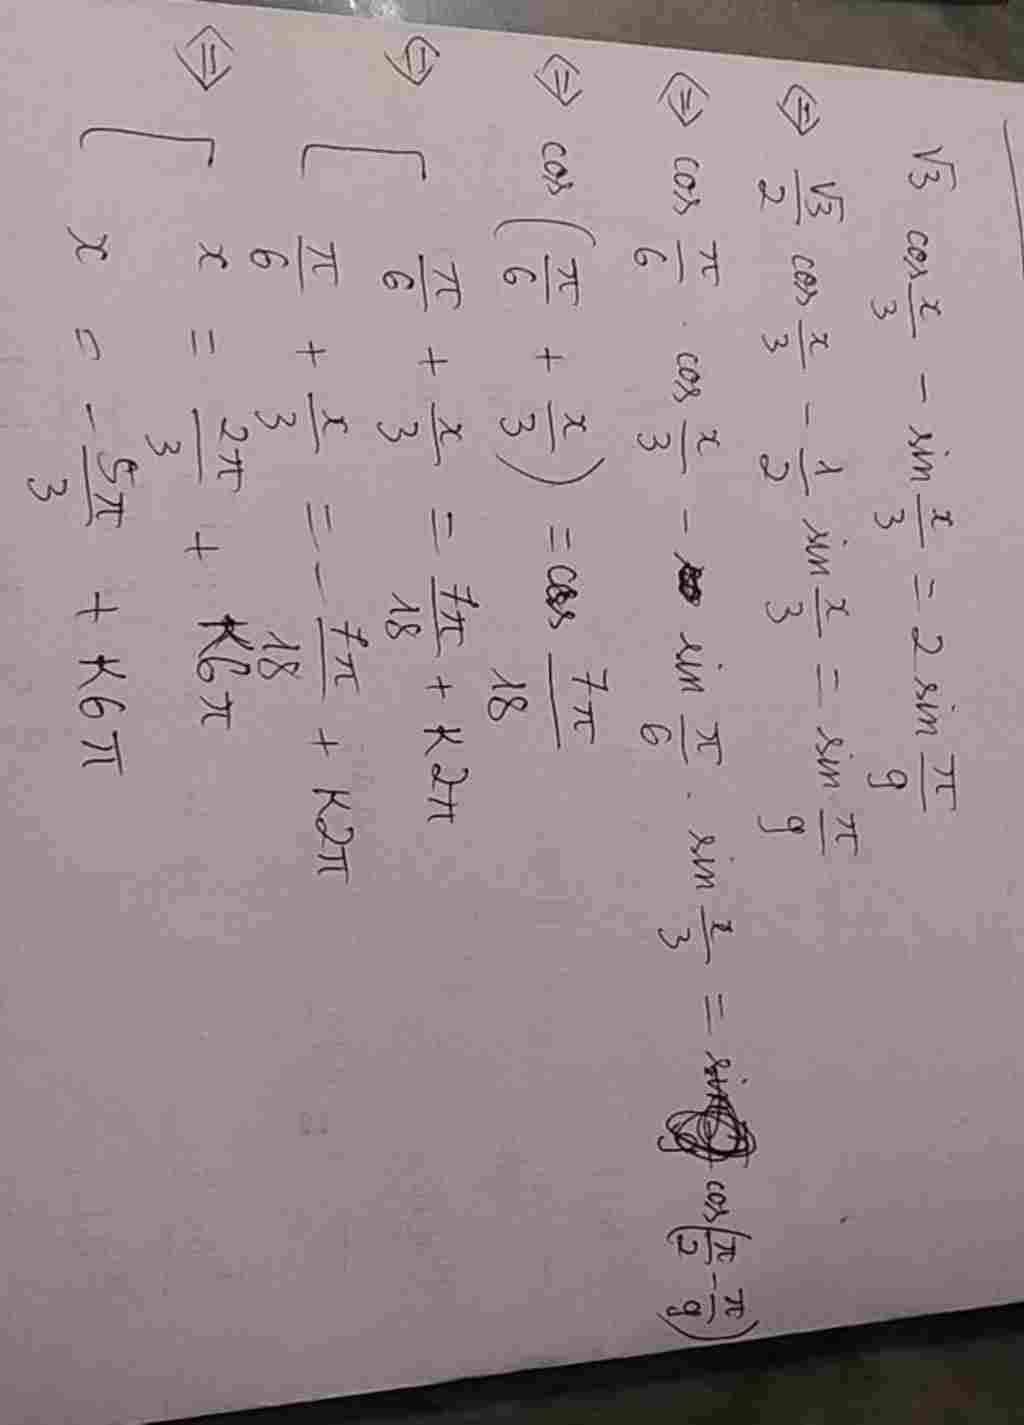 √3 cos x/3 - sin x/3 = 2 sin π/9
⇔ √3/2 cos x/3 - 1/2 sin x/3 = sin π/9
⇔ cos π/6 . cos x/3 - sin π/6 . sin x/3 = cos(π/2 - π/9)
⇔ cos(π/6 + x/3) = cos 7π/18
⇔ [ π/6 + x/3 = 7π/18 + K2π
π/6 + x/3 = - 7π/18 + K2π
⇔ [ x = 2π/3 + K6π
x = - 5π/3 + K6π